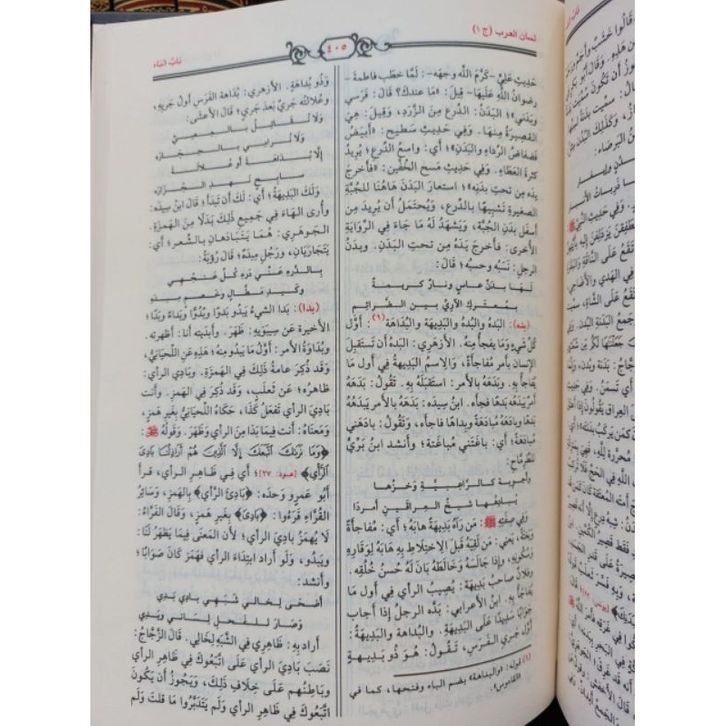 لسان العرب (ج ١)
٤٠٥
بَابُ البَاء
حَدِيثِ عَلِيٍّ -كَرَّمَ اللَّه وجهه-: لَمَّا خطَب فاطمةَ-
رضوانُ اللَّهِ عَلَيْهَا- قِيلَ: «مَا عندكَ؟ قَالَ: فَرَسي
وبَدَني»؛ البَدَنُ: الدِّرع مِنَ الزَّرَدِ، وَقِيلَ: هِيَ
القصيرةُ مِنْهَا. وَفِي حَدِيثِ سَطيح: «أَبيَضُ
فَضْفاضُ الرِّداءِ والبَدَن»؛ أَي: واسعُ الدِّرع؛ يُرِيدُ
كثرةَ العَطَاءِ. وَفِي حَدِيثِ مَسْحِ الخُفَّين: «فأَخرج
يدَه مِن تحتِ بدَنِه»؛ استعار البَدَنَ هَاهُنَا للجُبَّةِ
الصغيرةِ تَشْبِيهًا بالدِّرع، ويُحتمَلُ أَن يُرِيدَ مِن
أسفَل بدَنِ الجُبَّة، ويَشهَدُ لَهُ مَا جَاءَ فِي الرِّوَايَةِ
الأخرى: فأَخرجَ يَدَهُ مِن تحتِ البَدَنِ. وبَدَنُ
الرجلِ: نَسَبُه وحسبُه؛ قَالَ:
لَهَا بدَنٌ عاسٍ ونارٌ كريمةٌ
بمُعْتَرَكِ الآريِّ بين الضَّرائِمِ
[بده]: البَدْهُ والبُدْهُ والبَدِيهَة والبُدَاهَة(١): أَوَّلُ
كُلِّ شيءٍ وَمَا يفجأُ مِنْهُ. الأَزهري: البَدْهُ أَن تَستَقبِلَ
الإِنسانَ بأمرٍ مُفاجأَةً، وَالِاسْمُ البَدِيهَةُ فِي أَول مَا
يُفاجَأُ بِهِ. وبَدَهَهُ بالأَمر: استقبَلَهُ بِهِ. تَقُولُ: بَدَهَهُ
أمرٌ يَبدَهُهُ بَدْهًا فجأَه. ابنُ سِيدَه: بَدَهَهُ بالأَمر يَبدَهُهُ
بَدْهًا وبادَهَهُ مُبادَهَةً وبِداهًا فاجأَه، وَتَقُولُ: بادَهَني
مُبادَهَةً؛ أَي: باغَتَني مُباغَتةً؛ وأَنشد ابنُ بَرِّيٍّ
للطِّرِمَّاحِ:
وأَجوبة كالرَّاعبيَّةِ وَخزُها
يُبادِهُها شيخُ العِراقَينِ أَمردَا
وفي صِفتِهِ ﷺ: مَن رَآهُ بَدِيهَةً هابَهُ؛ أَي: مُفاجأةً
وبَغتَةً؛ يَعْنِي: مَن لَقِيَهُ قبلَ الاِختِلاطِ بِهِ هَابَهُ لوَقارِهِ
وسُكونِهِ، وإِذا جالَسَهُ وَخَالَطَهُ بَانَ لَهُ حُسنُ خُلُقِه.
وفلانٌ صاحبُ بَدِيهَةٍ: يُصِيبُ الرأيَ فِي أَول مَا
يُفاجَأُ بِهِ. ابنُ الأعرابي: بَدَّهَ الرجلُ إِذَا أَجاب
جَوَابًا سَدِيدًا عَلَى البَدِيهَةِ. والبُداهة والبَدِيهَة:
أَوَّلُ جَرْيِ الفَرَسِ، تَقُولُ: هُوَ ذُو بَدِيهَةٍ
(١) قوله: «والبداهة» بضم الباء وفتحها، كما في
«القاموس».
وَذُو بُدَاهَةٍ. الأزهري: بُدَاهَةُ الفَرَسِ أَولُ جَريِهِ،
وعُلالتُه جَريٌ بعدَ جَريٍ؛ قالَ الأَعشَى:
وَلَا نُقاتِلُ بالعِصِيِّ
وَلَا نُرامِي بالحِجارَه
إِلَّا بُدَاهَةَ أَو عُلالَةَ
سابِحٍ نَهدِ الجُزارَه
وَلَكَ البَدِيهَةُ؛ أَي: لَكَ أَن تَبدَأَ؛ قَالَ ابنُ سِيدَه:
وأُرَى الهَاءَ فِي جَمِيعِ ذَلِكَ بَدَلًا مِنَ الهَمزَةِ.
الجَوهَري: هُمَا يَتَبَادَهَانِ بِالشِّعر؛ أَي:
يَتَجَارَيَانِ، ورَجُلٌ مِبدَهٌ؛ قَالَ رُؤبَةُ:
بالدَّرءِ عنِّي دَرءِ كُلِّ عَنجُهِي
وكَيدِ مَطَّالٍ وخَصمٍ مِبدَهِ
[بدا]: بَدا الشيءُ يَبدُو بَدوًا وبُدُوًّا وبَداءً وبَدًا؛
الأَخيرة عَن سِيبَوَيهِ: ظَهَرَ. وأَبدَيته أَنا: أَظهرته.
وبُداوَةُ الأَمر: أَوَّلُ مَا يَبدُو مِنهُ؛ هَذِهِ عَنِ اللِّحيَانِيِّ،
وَقَد ذُكِرَ عَامَّةُ ذَلِكَ فِي الهَمزَةِ. وبادِيَ الرأي:
ظاهرُه؛ عَن ثَعلَبٍ، وَقَد ذُكِرَ فِي الهَمزِ. وأَنت
بادِيَ الرأي تَفعَلُ كَذَا، حَكَاهُ اللِّحيانيُّ بِغَيرِ هَمزٍ،
وَمَعنَاهُ: أَنت فِيمَا بَدَا مِنَ الرأي وَظَهَرَ. وَقَولُهُ ﷻ:
﴿وَمَا نَرَىٰكَ اتَّبَعَكَ إِلَّا الَّذِينَ هُمْ أَرَاذِلُنَا بَادِىَ
الرَّأْىِ﴾ [هود: ٢٧]؛ أَي فِي ظَاهِرِ الرأي، قرأَ
أَبُو عَمرٍو وَحدَه: ﴿بَادِئَ الرَّأْيِ﴾ بِالهَمزِ، وَسَائِرُ
القُرَّاءِ قَرَءُوا: ﴿بَادِيَ﴾ بِغَيرِ هَمزٍ، وَقَالَ الفَرَّاءُ:
لَا يُهمَزُ بَادِيَ الرأي؛ لأَنَّ المَعنَى فِيمَا يَظهَرُ لَنَا:
ويَبدُو، وَلَو أَراد ابتِدَاءَ الرأي فهَمَزَ كَانَ صَوَابًا؛
وأَنشد:
أَضحَى لِخالي شَبَهي بادِي بَدِي
وَصَارَ لِلفَحلِ لِساني ويَدِي
أَراد بِهِ: ظَاهِرِي فِي الشَّبَهِ لِخَالِي. قَالَ الزَّجَّاجُ:
نَصَبَ بَادِيَ الرأي عَلَى اتبَعُوكَ فِي ظَاهِرِ الرأي
وباطِنُهم عَلَى خِلَافِ ذَلِكَ، ويَجُوزُ أَن يَكُونَ
اتَّبَعُوكَ فِي ظَاهِرِ الرأي وَلَم يَتَدَبَّرُوا مَا قُلتَ وَلَم